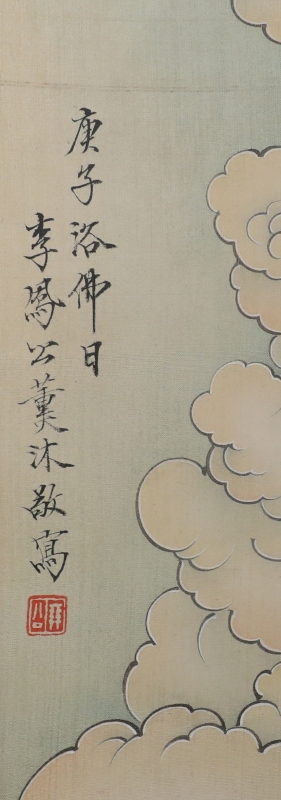 庚子浴佛日
李鳳公薰沐敬寫